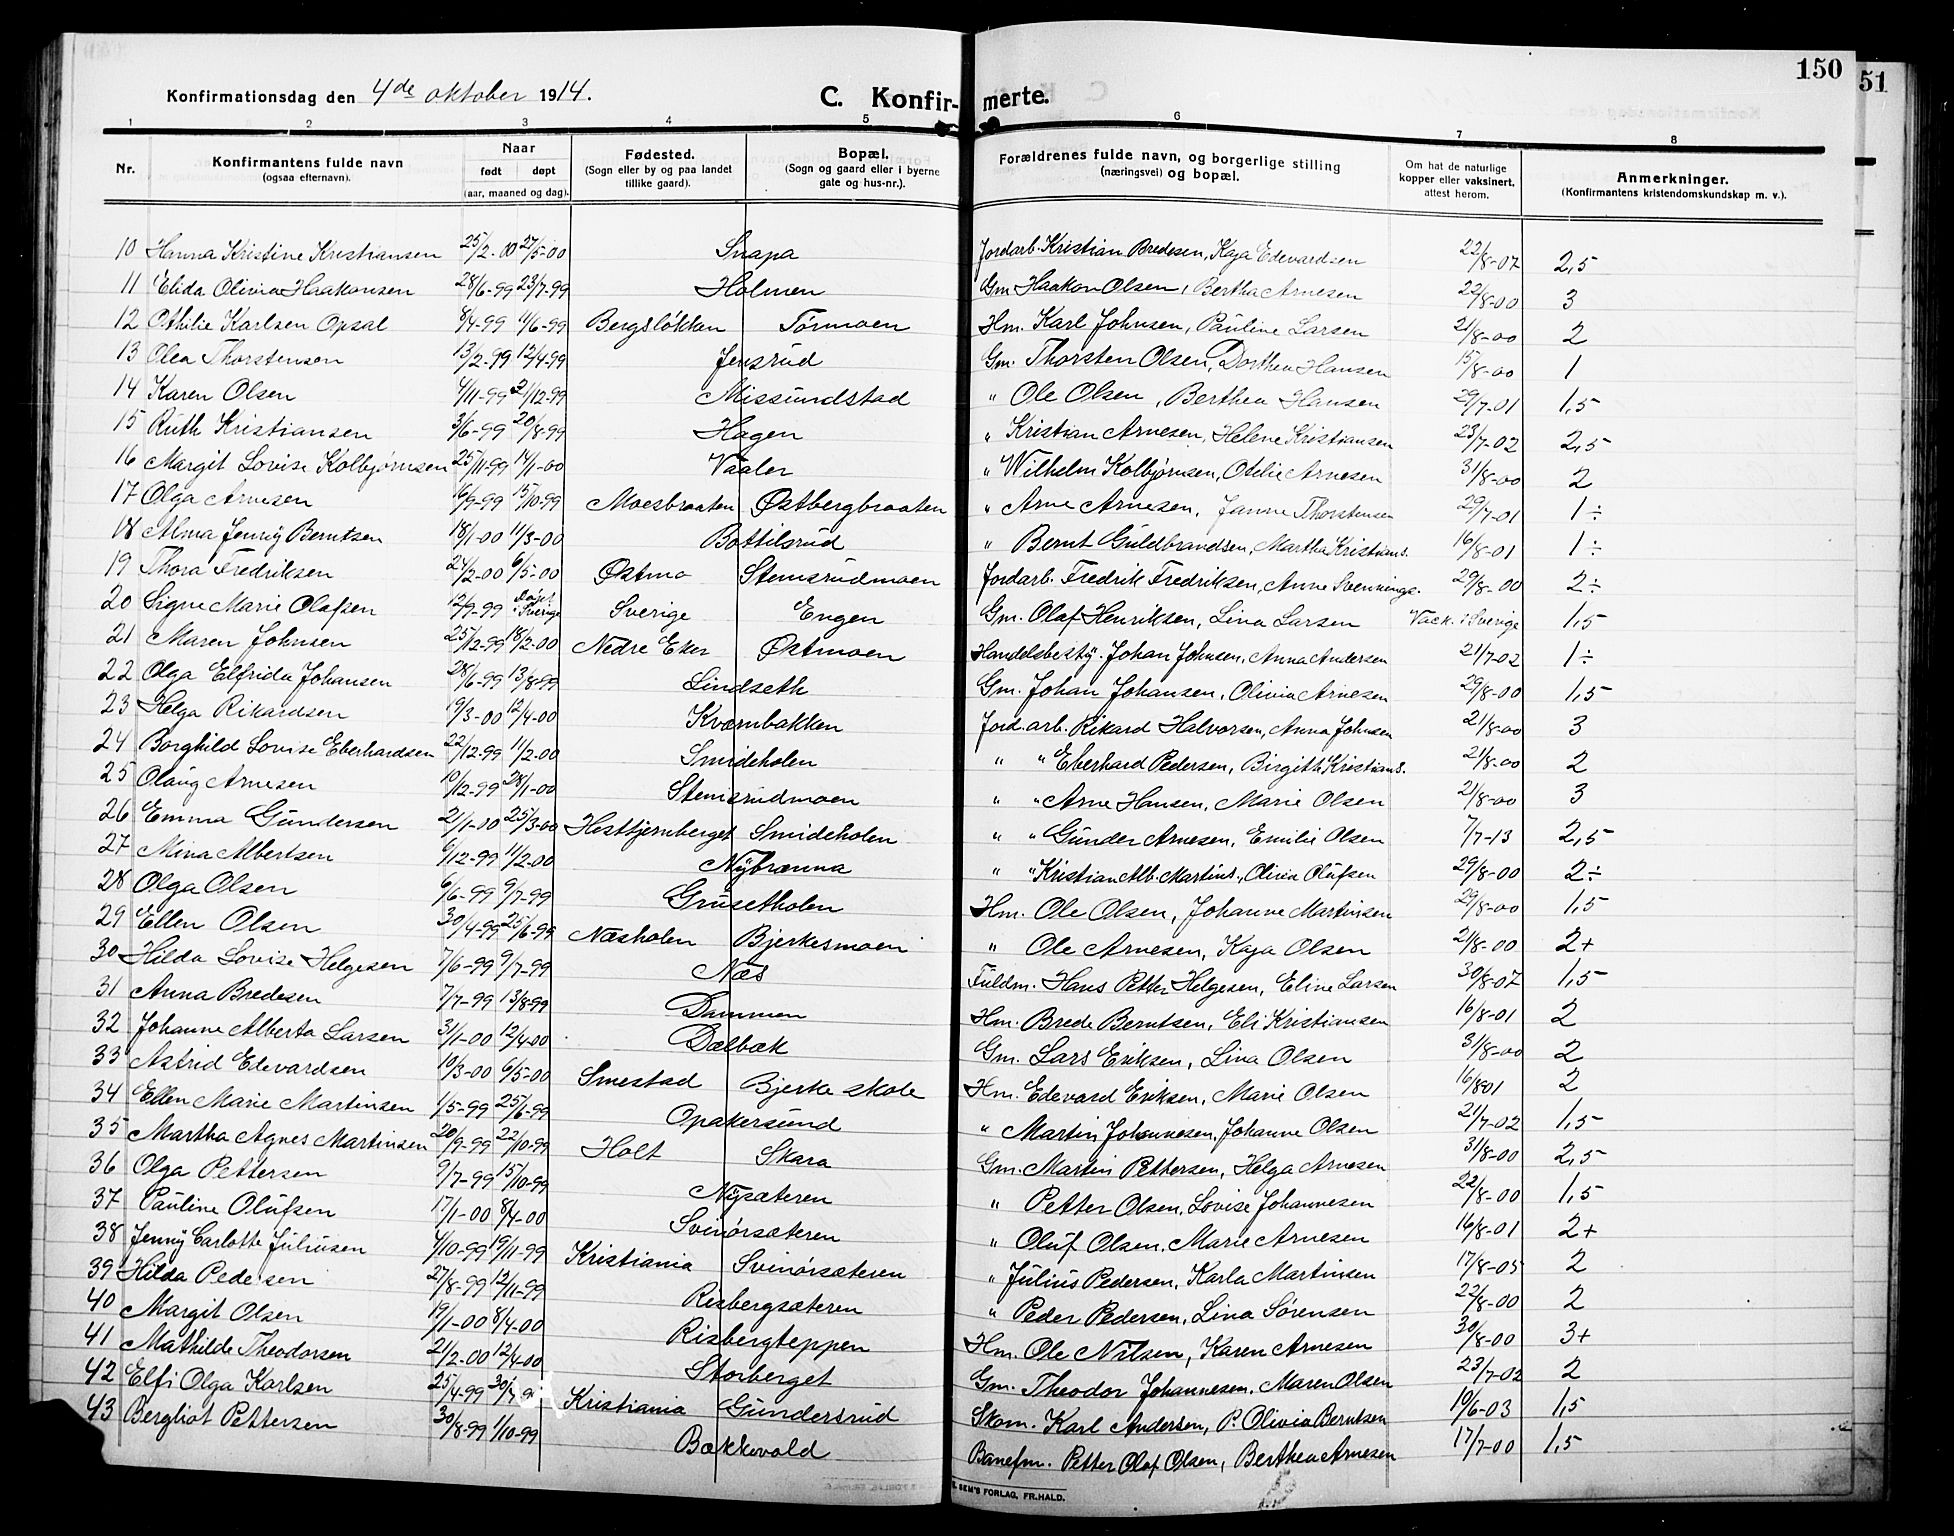 150
51
Konfirmationsdag den 4de oktober 1914.
C. Konfirmerte.
1 2 3 4 5 6 7 8
Nr. Konfirmantens fulde navn (ogsaa efternavn). Naar født døpt (aar, maaned og dag). Fødested. (Sogn eller by og paa landet tillike gaard). Bopæl. (Sogn og gaard eller i byerne gate og hus-nr.). Forældrenes fulde navn, og borgerlige stilling (næringsvei) og bopæl. Om hat de naturlige kopper eller vaksinert, attest herom. Anmerkninger. (Konfirmantens kristendomskundskap m. v.).
10 Hanna Kristine Kristiansen 25/2-00 27/5-00 Snapa Jordarb. Kristian Bredesen, Kaja Edevardsen 22/8-07 2,5
11 Elida Olivia Haakonsen 28/6-99 23/7-99 Holmen Gm. Haakon Olsen, Bertha Arnesen 22/8-00 3
12 Othilie Karlsen Opsal 8/4-99 11/6-99 Bergsløkken Tørmoen Hm. Karl Johnsen, Pauline Larsen 21/8-00 2
13 Olea Thorstensen 13/2-99 12/4-99 Jensrud Gm. Thorsten Olsen, Dorthea Hansen 15/8-00 1
14 Karen Olsen 4/11-99 21/12-99 Missundstad " Ole Olsen, Berthea Hansen 29/7-01 1,5
15 Ruth Kristiansen 3/6-99 20/8-99 Hagen " Kristian Arnesen, Helene Kristiansen 23/7-02 2,5
16 Margit Lovise Kolbjørnsen 25/11-99 14/1-00 Vaaler " Wilhelm Kolbjørnsen, Otelie Arnesen 31/8-00 2
17 Olga Arnesen 16/9-99 15/10-99 Moesbraaten Østbergbraaten " Arne Arnesen, Janne Thorstensen 29/7-01 1÷
18 Alma Jenny Berntsen 18/1-00 11/3-00 Bottilsrud " Bernt Guldbrandsen, Martha Kristians. 16/8-01 1÷
19 Thora Fredriksen 24/2-00 6/5-00 Østmo Stemsrudmoen Jordarb. Fredrik Fredriksen, Anne Svennings. 29/8-00 2÷
20 Signe Marie Olafsen 12/9-99 døpt i Sverige Sverige Engen Gm. Olaf Henriksen, Lina Larsen Vack. i Sverige 1,5
21 Maren Johnsen 25/12-99 18/2-00 Nedre Eker Østmoen Handelsbesty. Johan Johnsen, Anna Andersen 21/7-02 1÷
22 Olga Elfrida Johansen 28/6-99 13/8-99 Lindseth Gm. Johan Johansen, Olivia Arnesen 29/8-00 1,5
23 Helga Rikardsen 19/3-00 12/4-00 Kværnbakken Jord.arb. Rikard Halvorsen, Anna Johnsen 21/8-00 3
24 Borghild Lovise Eberhardsen 22/12-99 11/2-00 Smideholen " " Eberhard Pedersen, Birgithe Kristians. 21/8-00 2
25 Olaug Arnesen 10/12-99 28/1-00 Stemsrudmoen " " Arne Hansen, Marie Olsen 21/8-00 3
26 Emma Gundersen 21/1-00 25/3-00 Hestbjernberget Smideholen " " Gunder Arnesen, Emilie Olsen 7/7-13 2,5
27 Mina Albertsen 6/12-99 11/2-00 Nybrænna " " Kristian Alb. Martins., Olivia Olufsen 29/8-00 2÷
28 Olga Olsen 6/6-99 9/7-99 Grusetholen Hm. Ole Olsen, Johanne Martinsen 29/8-00 1,5
29 Ellen Olsen 30/4-99 25/6-99 Næsholen Bjerkesmoen " Ole Arnesen, Kaja Olsen 21/8-00 2+
30 Hilda Lovise Helgesen 7/6-99 9/7-99 Næs Fuldm. Hans Petter Helgesen, Eline Larsen 30/8-07 1,5
31 Anna Bredesen 7/7-99 13/8-99 Dammen Hm. Brede Berntsen, Eli Kristiansen 16/8-01 2
32 Johanne Alberta Larsen 31/1-00 12/4-00 Dælbæk Gm. Lars Eriksen, Lina Olsen 31/8-00 2
33 Astrid Edevardsen 10/3-00 6/5-00 Smestad Bjerke skole Hm. Edevard Eriksen, Marie Olsen 16/8 01 2
34 Ellen Marie Martinsen 1/5-99 25/6-99 Opakersund " Martin Johannesen, Johanne Olsen 21/7-02 1,5
35 Martha Agnes Martinsen 20/9-99 22/10-99 Holt Skara Gm. Martin Pettersen, Helga Arnesen 31/8-00 2,5
36 Olga Pettersen 9/7-99 15/10-99 Nysæteren " Petter Olsen, Lovise Johannesen 22/8-00 1,5
37 Pauline Olufsen 17/1-00 8/4-00 Svinørsæteren " Oluf Olsen, Marie Arnesen 16/8-01 2+
38 Jenny Carlotte Juliusen 4/10-99 19/11-99 Kristiania Svinørsæteren " Julius Pedersen, Karla Martinsen 17/8-05 2
39 Hilda Pedersen 27/8-99 12/11-99 Risbergsæteren " Peder Pedersen, Lina Sørensen 22/8-00 2
40 Margit Olsen 19/1-00 8/4-00 Risbergteppen Hm. Ole Nilsen, Karen Arnesen 30/8-00 3+
41 Mathilde Theodorsen 21/2-00 12/4-00 Storberget Gm. Theodor Johannesen, Maren Olsen 23/7-02 2
42 Elfi Olga Karlsen 25/4-99 30/7 Kristiania Gundersrud Skom. Karl Andersen, P. Olivia Berntsen 10/6-03 1,5
43 Bergliot Pettersen 30/8-99 1/10-99 Bækkevold Banefm. Petter Olaf Olsen, Berthea Arnesen 17/7-00 1,5
SEM'S FORLAG, FR.HALD.